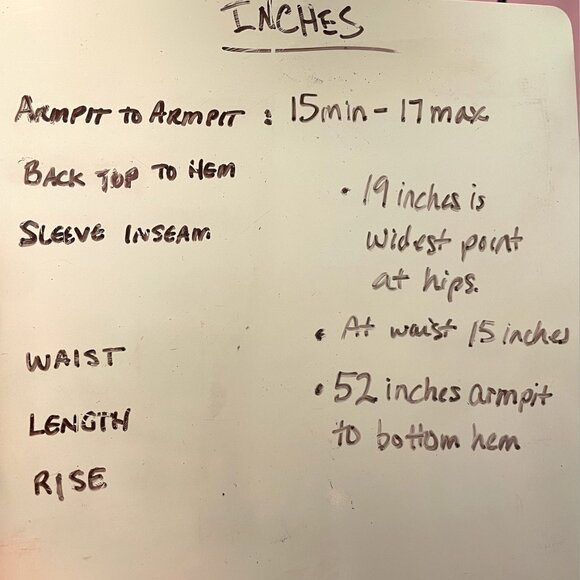 INCHES
ARMPIT TO ARMPIT : 15min - 17max
BACK TOP TO HEM
SLEEVE INSEAM
• 19 inches is
widest point
at hips.
• At waist 15 inches
• 52 inches armpit
to bottom hem
WAIST
LENGTH
RISE